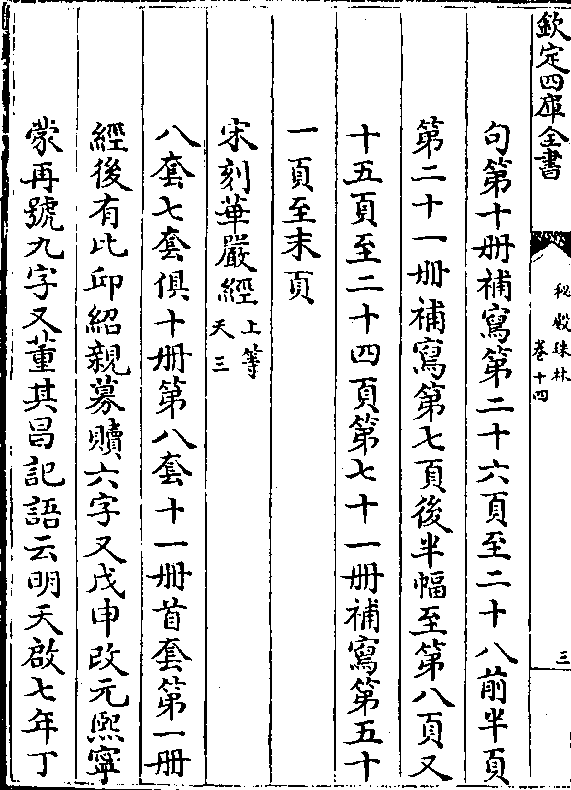 欽定四庫全書
秘殿珠林
卷十四
三
句第十册補寫第二十六頁至二十八前半頁
第二十一册補寫第七頁後半幅至第八頁又
十五頁至二十四頁第七十一册補寫第五十
一頁至末頁
宋刻華嚴經上等
天三
八套七套俱十册第八套十一册首套第一册
經後有比邱紹親募贖六字又戊申改元熙寧
蒙再號九字又董其昌記語云明天啟七年丁